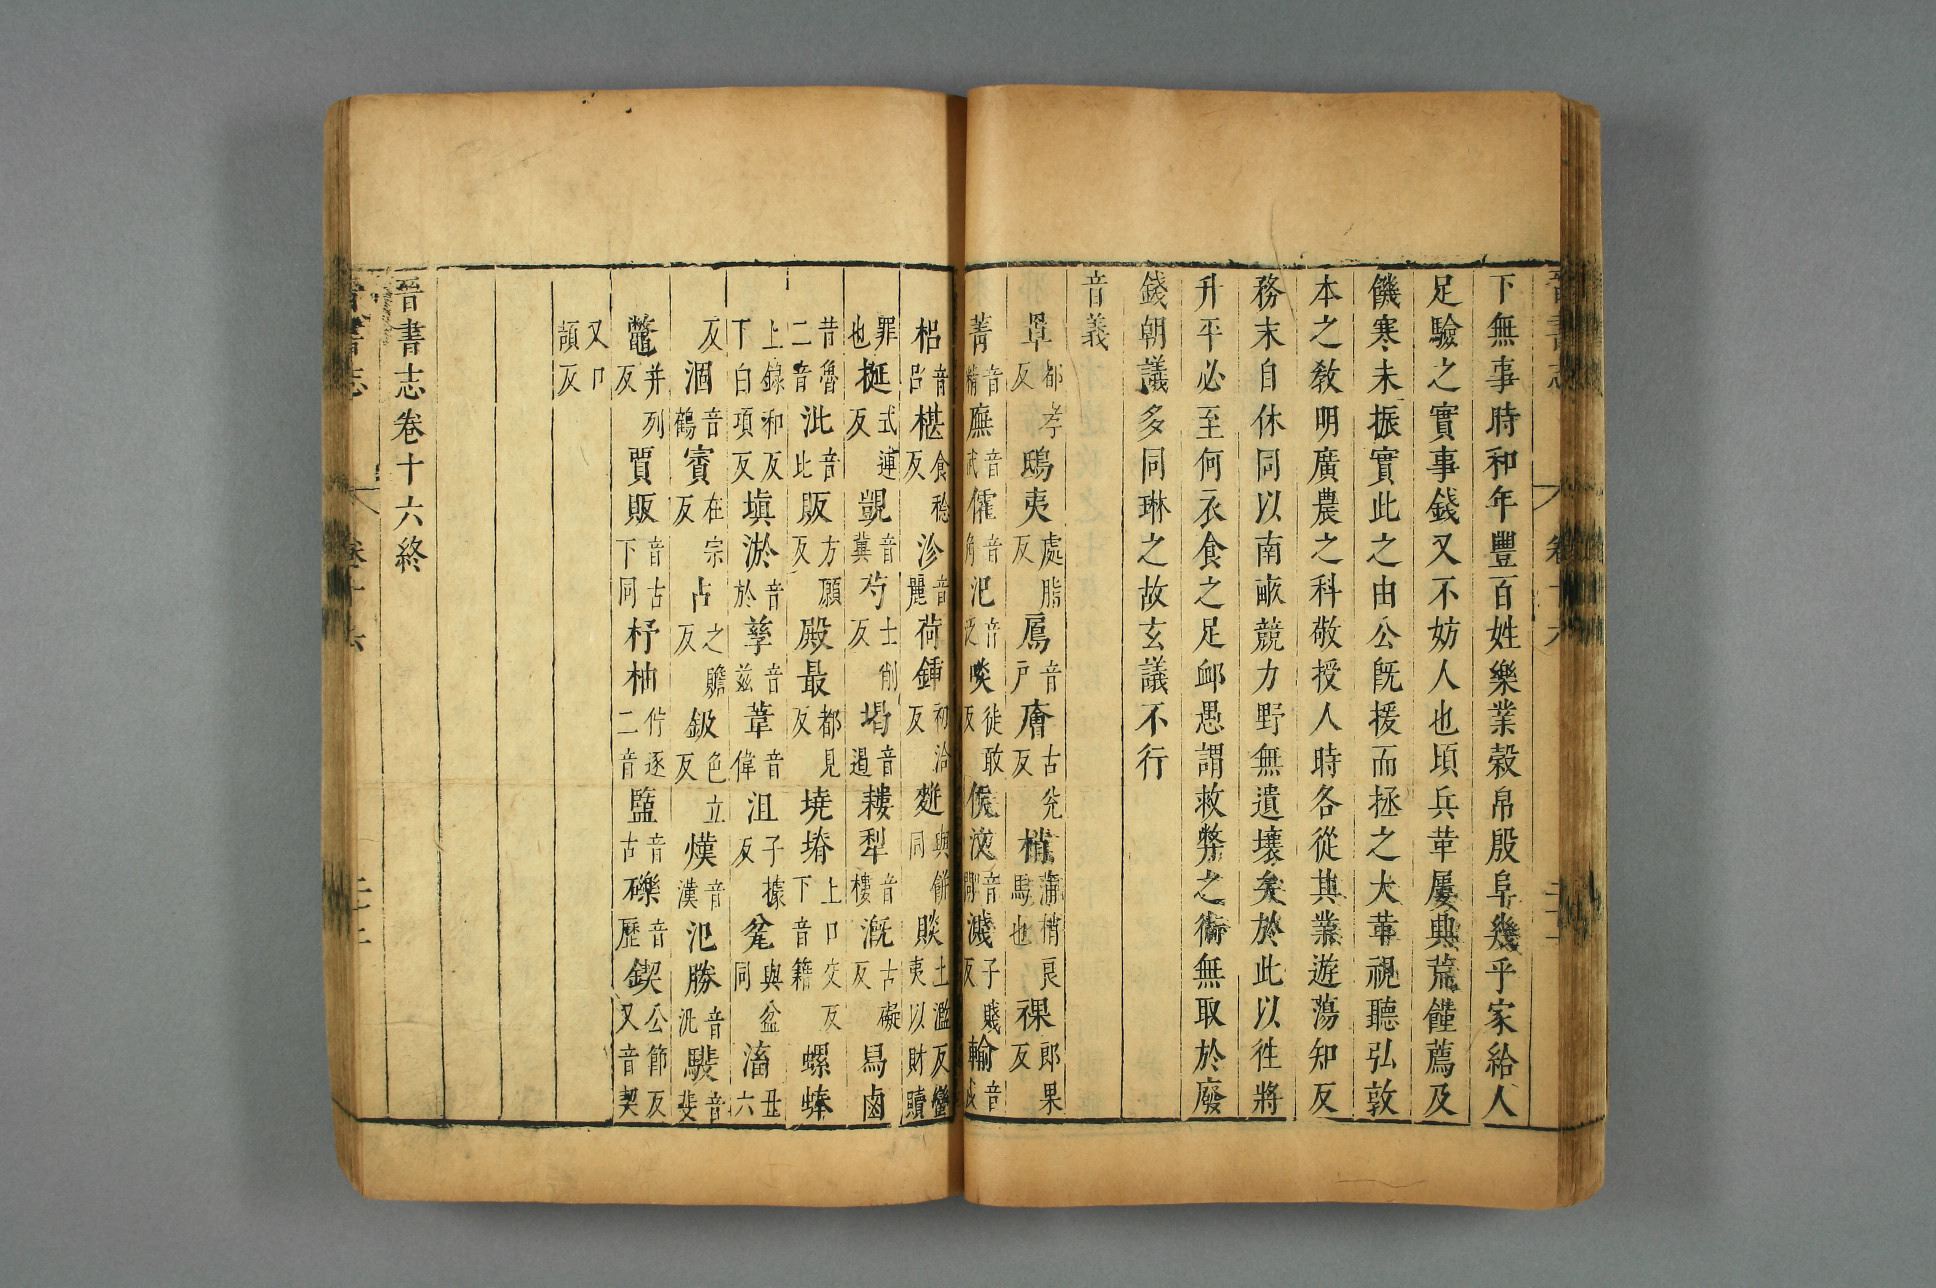 下無事時和年豐百姓樂業穀帛殷阜幾乎家給人
足驗之實事錢又不妨人也頃兵革屢典荒饉薦及
饑寒未振實此之由公既援而拯之大革視聽弘敦
本之敎明廣農之科敬授人時各從其業遊蕩知反
務末自休同以南畝競力野無遺壤矣於此以徃將
升平必至何衣食之足䘏愚謂救弊之術無取於廢
錢朝議多同琳之故玄議不行
音義
罩都孝反鴟夷處脂反鳸音戶廥古兊反梢蒲梢良馬也祼郎果反
菁音精廡音武㒓音角汜音汜啖徒敢反
梠音吕椹食稔反沴音麗荷鍤初洽反䴵與餅同賧土濫反蠻夷以財贖
罪也梴式連反覬音冀芍士削反堨音遏耬犁音樓漑古礙反舄鹵
昔魯二音泚音比販方願反殿最都見反墝塉上口交反下音籍螺蜯
上錄和反下白項反塡淤音於孳音兹葦音偉沮子據反㝃與盆同滀丑六
反涸音鶴賨在宗反占之贍反鈒色立反熯音漢氾勝音汎䮼音斐
鼈并列反賈販音古下同杼柚佇逐二音盬音古礫音歷鍥公節反又音契
又口頡反
晉書志卷十六終
晉書志 卷十六